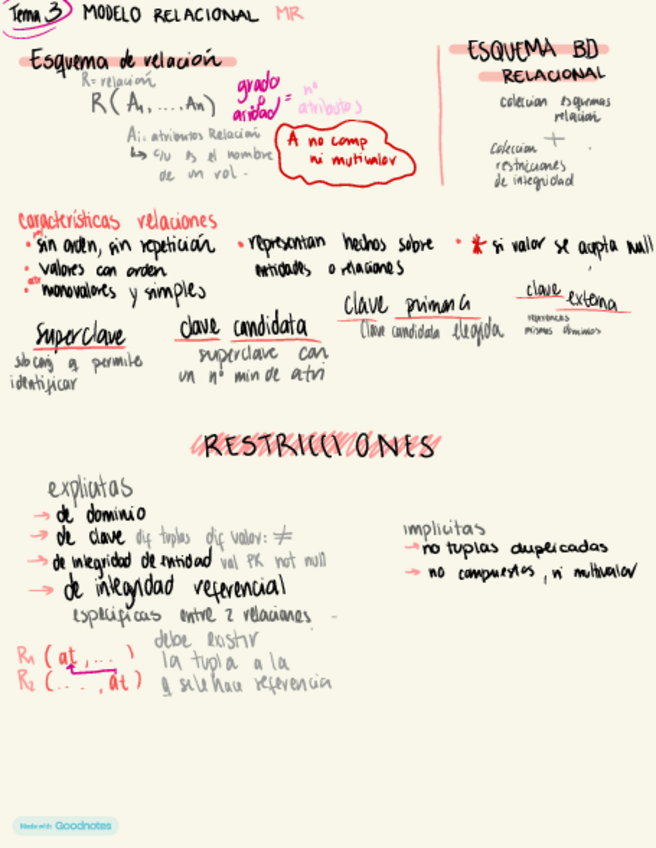 Tema 3 MODELO RELACIONAL MR
Esquema de relación
R= relación
R( A₁, .... An)
grado o aridad = nº atributos
Ai: atributos Relación
↳ c/u es el nombre
de un rol.
A no comp
ni mutivalor
ESQUEMA BD
RELACIONAL
colección esquemas
relación
+
Colección
restricciones
de integridad
características relaciones
• sin orden, sin repetición
• valores con orden
• monovalores y simples
• representan hechos sobre
entidades o relaciones
• * si valor se acpta null
Superclave
sbconj q permite
identificar
clave candidata
superclave con
un nº min de atri
clave primaria
Clave candidata elegida
clave externa
referencias
mismos dominios
RESTRICCIONES
explicitas
→ de dominio
→ de clave dif tuplas dif valor: ≠
→ de integridad de entidad val PK not null
→ de integridad referencial
especificas entre 2 relaciones
R₁ ( at, ... )
R₂ (.... , at )
debe existir
la tupla a la
q se le hace referencia
implicitas
→ no tuplas duplicadas
→ no compuestos, ni multivalor
Made with Goodnotes